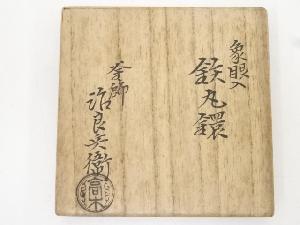 象眼入
鉄丸鐶
釜師
治良兵衛